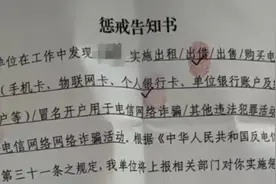 惩戒告知书
单位在工作中发现 实施出租/出借/出售/购买电
(手机卡、物联网卡、个人银行卡、单位银行账户及
户等)/冒名开户用于电信网络诈骗/其他违法犯罪活动
电信网络网络诈骗活动。根据《中华人民共和国反电信
第三十一条之规定，我单位将上报相关部门对你实施惩